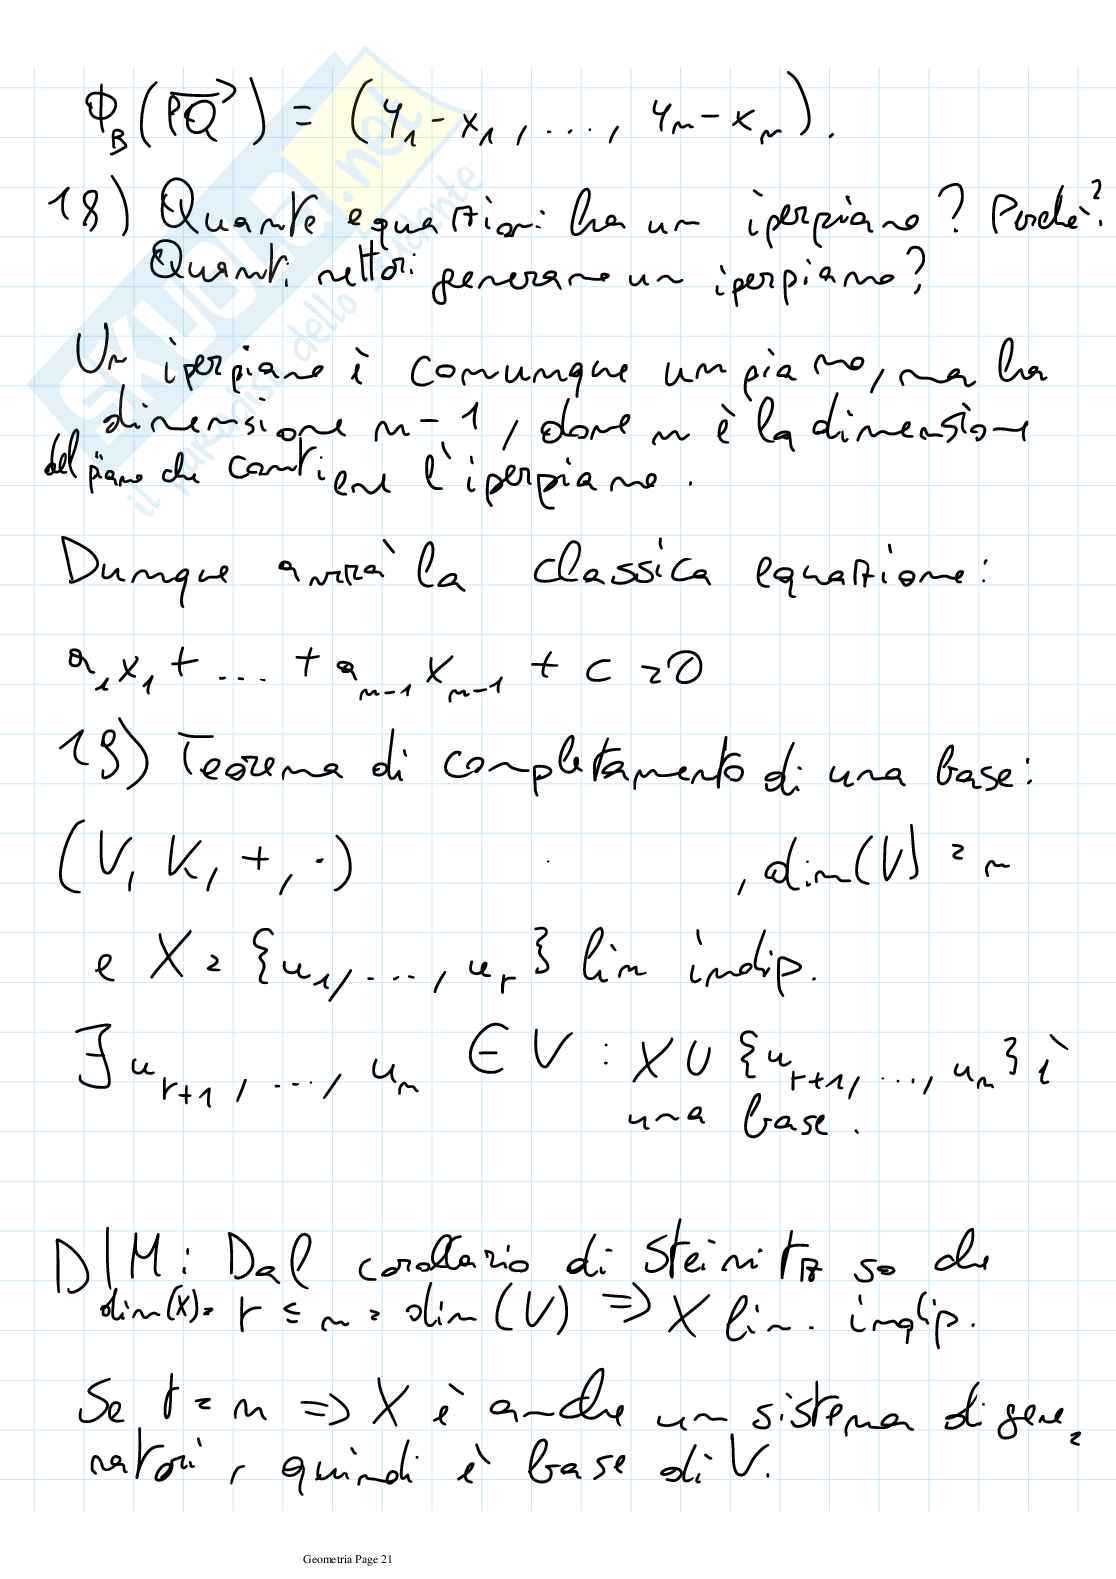 Φ_B (PQ→) = (y₁ - x₁, ..., yₙ - xₙ).
18) Quante equazioni ha un iperpiano? Perchè?
Quanti vettori generano un iperpiano?
Un iperpiano è comunque un piano, ma ha
dimensione n-1, dove n è la dimensione
del piano che contiene l'iperpiano.
Dunque avrà la classica equazione:
a₁x₁ + ... + aₙ₋₁xₙ₋₁ + c = 0
19) Teorema di completamento di una base:
(V, K, +, ·) , dim(V) = n
e X = {u₁, ..., uᵣ} lin indip.
∃ uᵣ₊₁, ..., uₙ ∈ V : X ∪ {uᵣ₊₁, ..., uₙ} è
una base.
DIM: Dal corollario di Steinitz so che
dim(X) = r ≤ n = dim(V) => X lin. indip.
Se r = n => X è anche un sistema di gene=
ratori, quindi è base di V.
Geometria Page 21
SKUOLA.net
il paradiso dello studente